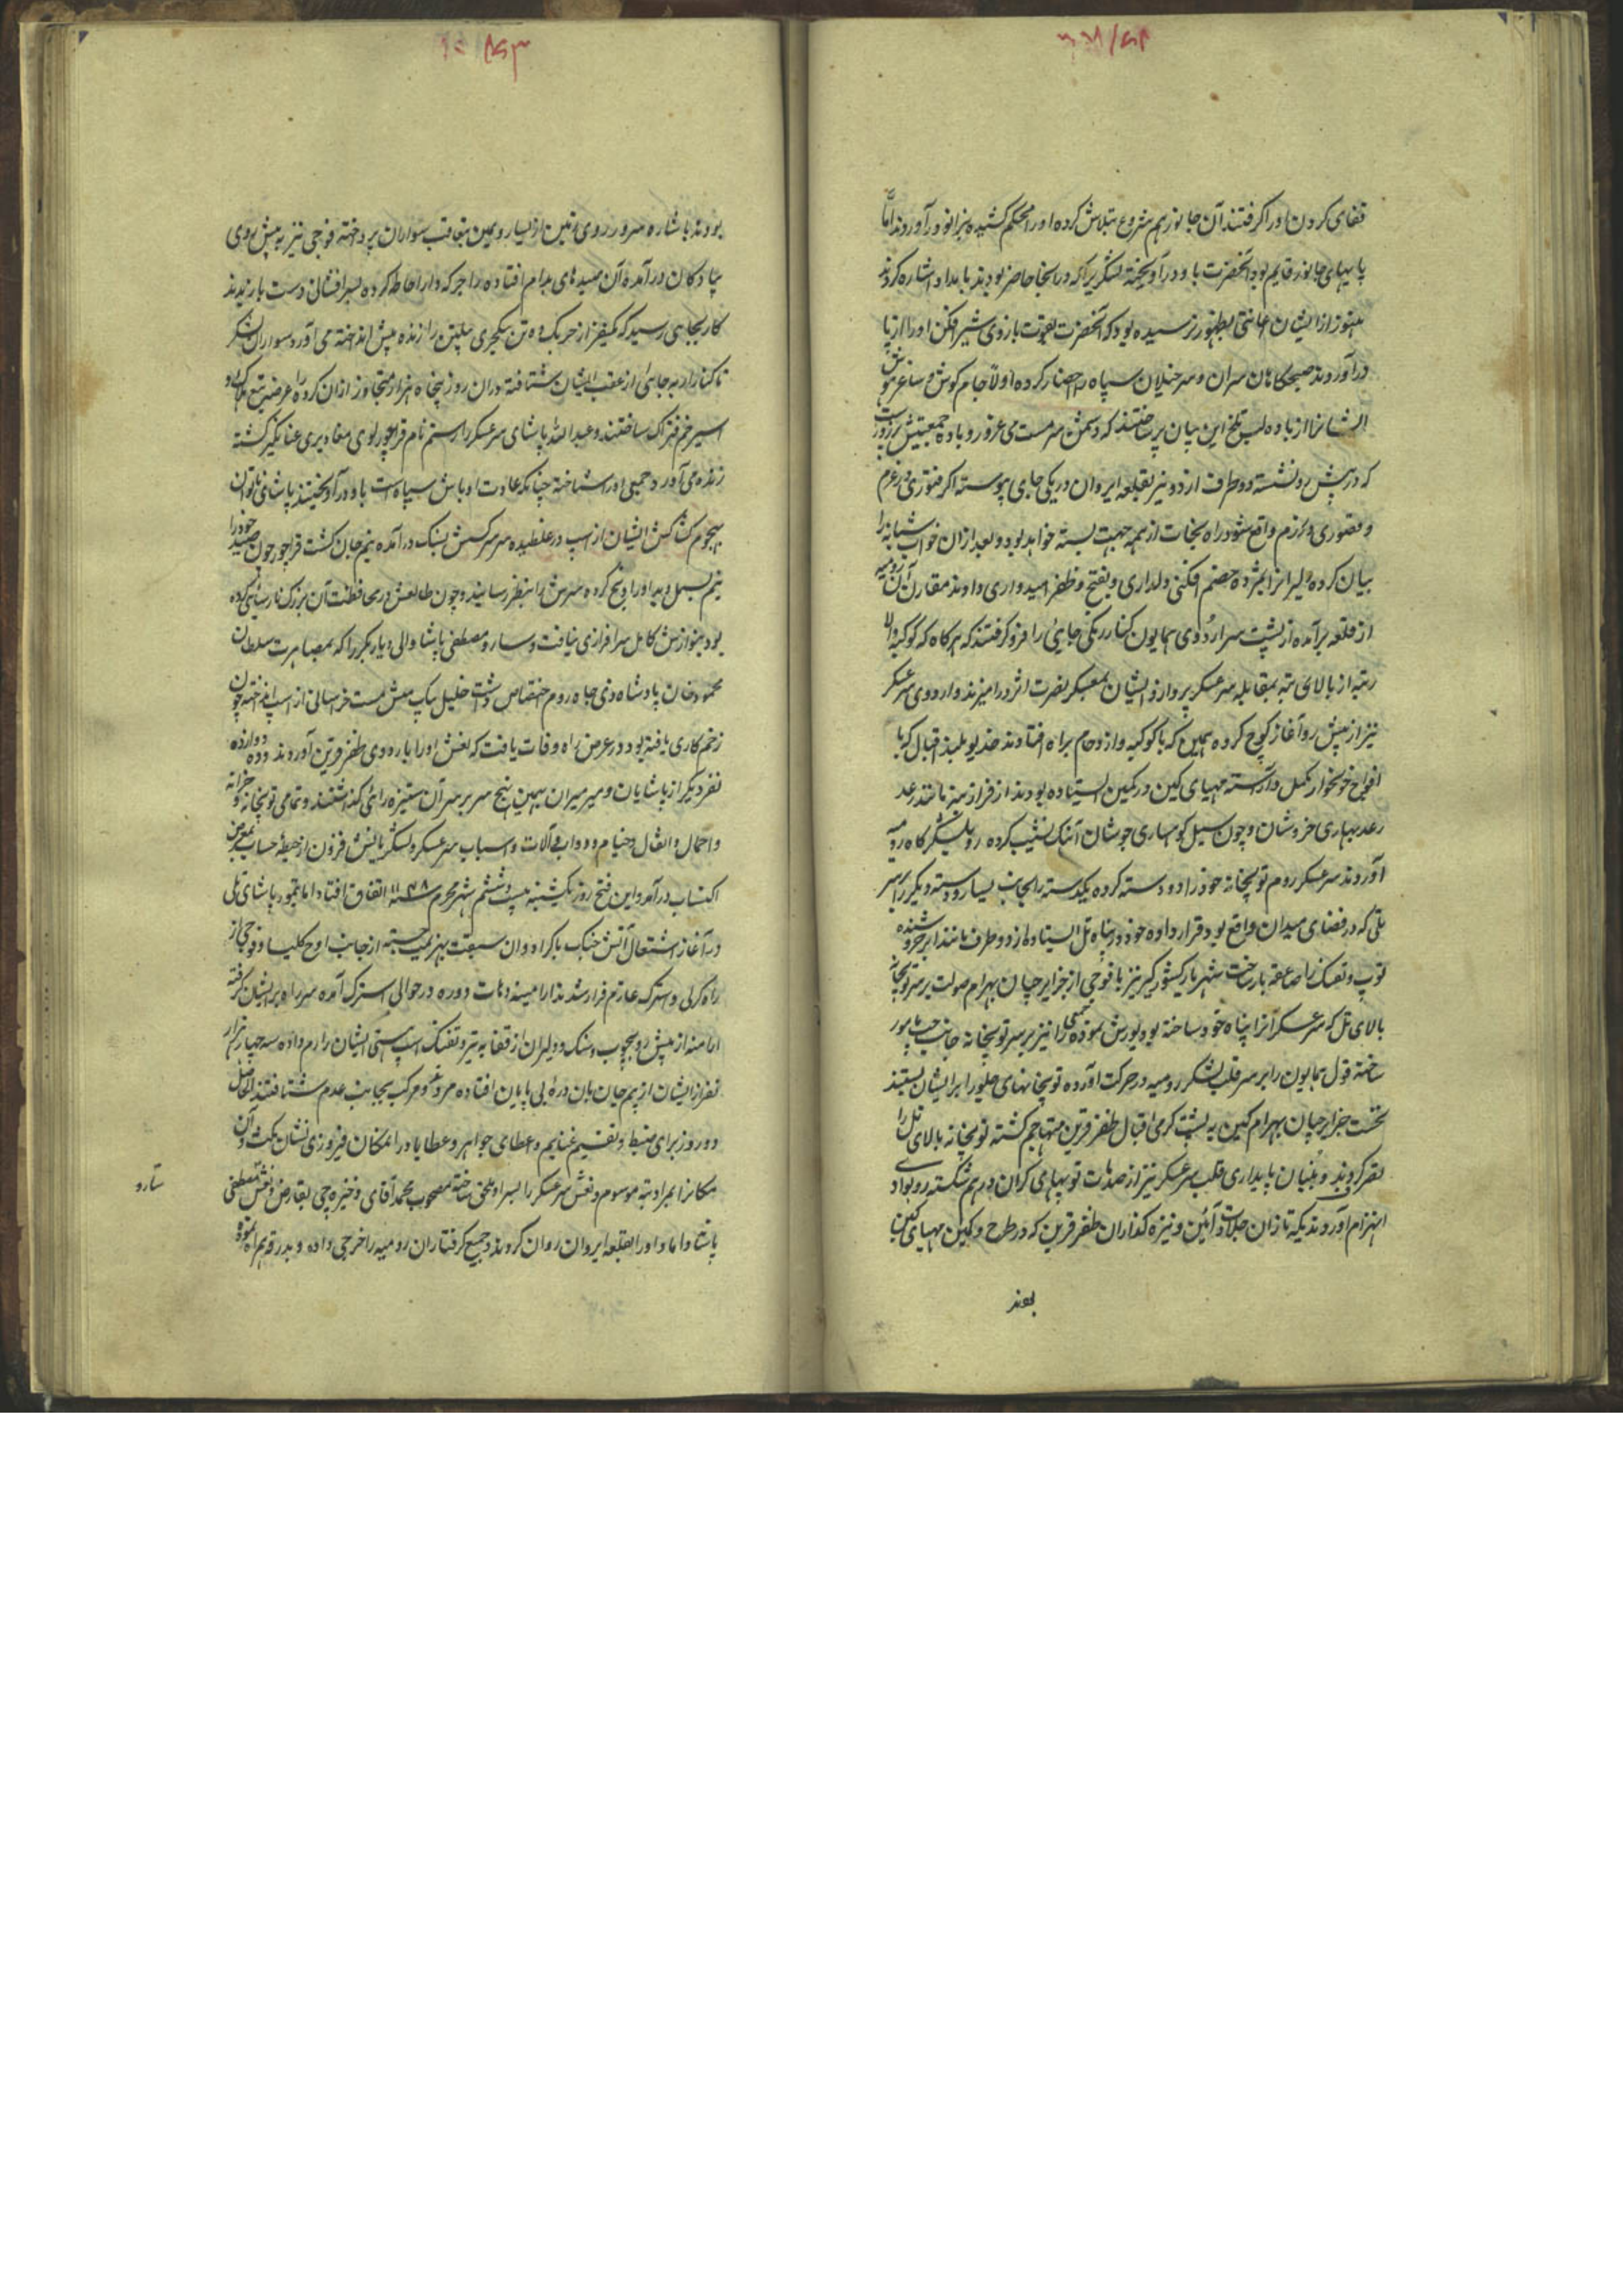 قفای کردن او را گرفتند آن جانور هم شروع بتلاش کرده او را محکم کشیده بزانو در آوردند اما
پایهای جانور قایم بود آنحضرت باو در آویخته لشگریرا که در انجا حاضر بودند بامداد اشاره کردند
هنوز از ایشان اعانتی بظهور نرسیده بود که آنحضرت بقوت بازوی شیر افکن او را از پا
در آوردند صبحگاهان سران و سرخیلان سپاه را احضار کرده اولا جام گوش و ساغر هوش
ایشانرا از باده لب تلخ این بیان پر ساختند که دشمن سرمست می غرور و باده جمعیتش پر زور است
که در پیش رو نشسته و دو طرف اردو نیز بقلعه ایروان و زنگی چای پیوسته اگر فتوری در عزم
و قصوری در رزم واقع شود راه نجات از همه جهت بسته خواهد بود و بعد از آن خواب شبانه را
بیان کرده دلیرانرا بمژده خصم افکنی دلداری و بفتح و ظفر امیدواری دادند مقارن آن رومیه
از قلعه بر آمده از پشت سر اردوی همایون کنار زنگی چایی را فرو گرفتند که هرگاه که کوکبه والا
رتبه از بالای تپه بمقابله سرعسکر پردازد ایشان بمعسکر نصرت اثر در آمیزند و اردوی سرعسکر
نیز از پیش رو آغاز کوچ کرده همین که با کوکبه و ازدحام براه افتادند خدیو بلند اقبال که با
افواج خونخوار مکمل و آراسته مهیای کین در کمین ایستاده بودند از فراز تپه مانند رعد
رعد بهاری خروشان و چون سیل کوهساری جوشان آهنگ نشیب کرده رو بلشکرگاه رومیه
آوردند سرعسکر روم توپخانه خود را دو دسته کرده یکدسته را بجانب یسار و دسته دیگر را بر سر
تلی که در فضای میدان واقع بود قرار داده خود در پناه تل ایستاد و از دو طرف مانند ابر خروشنده
توپ و تفنگ را صاعقه بار ساخت شهریار کشورگیر نیز با فوجی از جزایرچیان بهرام صولت بر سر توپخانه
بالای تل که سرعسکر آنرا پناه خود ساخته بود یورش نموده جمعی را نیز بر سر توپخانه جانب چپ مامور
ساخته قول همایون را بر سر قلب لشکر رومیه در حرکت آورده توپخانهای جلو را بر ایشان بستند
نخست جزایرچیان بهرام کین به پشت گرمی اقبال ظفر قرین متهاجم گشته توپخانه بالای تل را
تصرف کردند و بنیان پایداری قلب سرعسکر نیز از صدمات توپهای گران در هم شکسته رو بوادی
انهزام آوردند یکه تازان جلادت آئین و نیزه گذاران ظفر قرین که در طرح و کمین مهیای کین
بودند
بودند باشاره سرور روی زمین از یسار و یمین بتعاقب سواران پرداخته فوجی نیز به پیش روی
پیادگان در آمده آن صیدهای بدام افتاده را جرگه وار احاطه کرده بسر افشانی دست یازیدند
کار بجایی رسید که یکنفر از چریک ده تن ینکچری پیلتن را زنده پیش انداخته می آورد سواران لشکر
تا کنار ارپه چایی از عقب ایشان شتافته در ان روز پنجاه هزار متجاوز از ان گروه را عرضه تیغ هلاک و
اسیر خم فتراک ساختند و عبد الله پاشای سرعسکر را رستم نام قراچورلوی مغاویری عنانگیر گشته
زنده می آورد جمعی او را شناخته چنانکه عادت اوباش سپاه است باو در آویختند پاشای ناتوان
بهجوم کشاکش ایشان از اسپ در غلطیده سر سرکشش بسنگ در آمده نیم جان گشت قراچور چون صید خود را
نیم بسمل دید او را ذبح کرده سرش را بنظر رسانید و چون طالعش در محافظت آن بزرگ نارسایی کرده
بود بنوازش کامل سرافرازی نیافت و سارو مصطفی پاشا والی دیاربکر را که بمصاهرت سلطان
محمود خان پادشاه ذی جاه روم اختصاص داشت خلیل بیک مین مست خراسانی از اسپ انداخته چون
زخم کاری یافته بود در عرض راه وفات یافت که نعش او را باردوی ظفر قرین آوردند و دوازده
نفر دیگر از پاشایان و میرمیران بهمین نهج سر بر سر آن ستیزه رائی گذاشتند و تمامی توپخانه و خزانه
و احمال و اثقال و خیام و دواب و آلات و اسباب سرعسکر و لشکریانش فزون از حیطه حساب بمعرض
اکتساب در آمد و این فتح روز یکشنبه بیست و ششم شهر محرم سنه ۱۱۴۸ اتفاق افتاد اما تیمور پاشای ملی
در آغاز اشتعال آتش جنگ با اکراد وان سبقت بهزیمت جسته از جانب اوچ کلیسا و فوجی از
راه گرلی و اشترک عازم فرار شدند ارامنه دهات دوره در حوالی اشترک آمده سر راه بر ایشان گرفته
ارامنه از پیش رو بچوب و سنگ و دلیران از قفا به تیر و تفنگ اسپ هستی ایشان را رم داده سه چهار هزار
نفر از ایشان از بیم جان بان دره بی پایان افتاده مرد و مرکب بجانب عدم شتافتند القصه
دو روز برای ضبط و تقسیم غنایم و اعطای جواهر و عطایا در المکان فیروزی نشان مکث و آن
مکانرا بمراد تپه موسوم و نعش سرعسکر را بسر او ملحق ساخته مصحوب محمد آقای ذخیره چی بقارص و نعش مصطفی
پاشا داماد او را بقلعه ایروان روان کردند و جمیع گرفتاران رومیه را خرجی داده و بدرقه همراه نموده